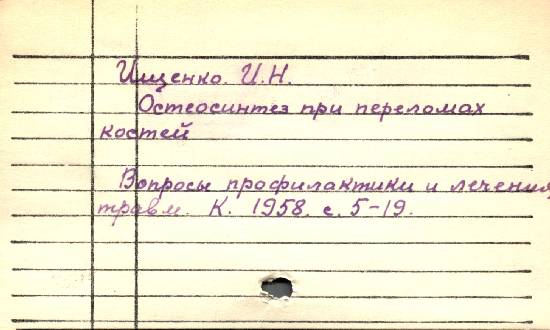 Ищенко. И.Н.
Остеосинтез при переломах
костей
Вопросы профилактики и лечения
травм. К. 1958. с. 5-19.